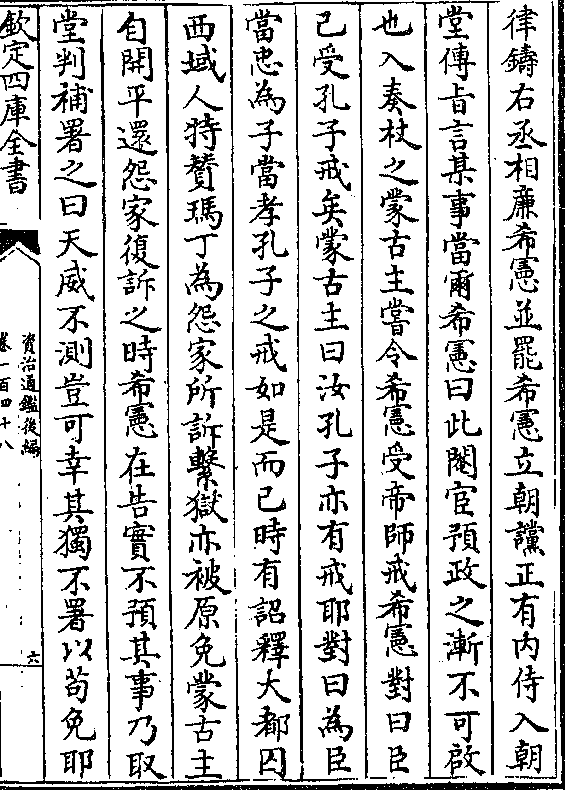 律鑄右丞相廉希憲並罷希憲立朝讜正有内侍入朝
堂傳㫖言某事當爾希憲曰此閹宦預政之漸不可啟
也入奏杖之蒙古主嘗令希憲受帝師戒希憲對曰臣
已受孔子戒矣蒙古主曰汝孔子亦有戒耶對曰為臣
當忠為子當孝孔子之戒如是而已時有詔釋大都囚
西域人特賛瑪丁為怨家所訴繫獄亦被原免蒙古主
自開平還怨家復訴之時希憲在告實不預其事乃取
堂判補署之曰天威不測豈可幸其獨不署以苟免耶
欽定四庫全書
資治通鑑後編
卷一百四十八
六